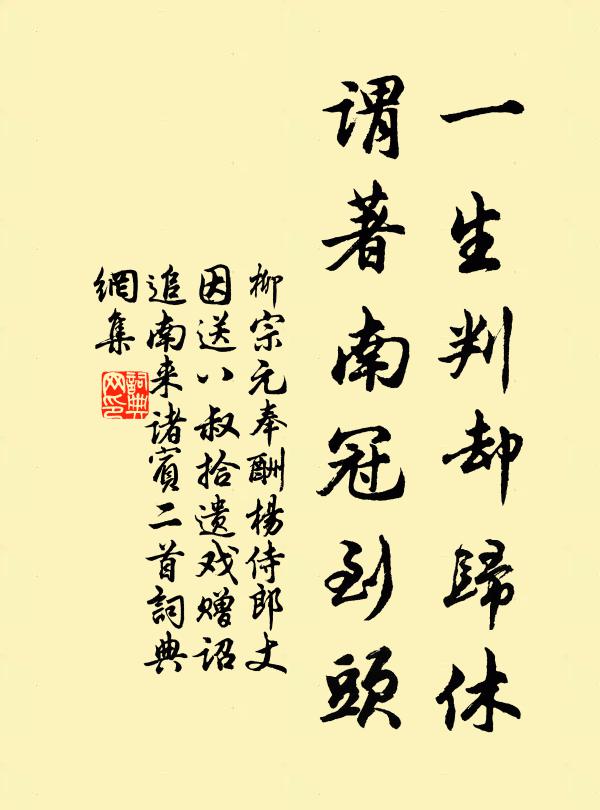 一生判却歸休
謂著南冠到頭
柳宗元奉酬楊侍郎丈
因送八叔拾遗戏赠诏
追南来诸賓二首詞典
網集
詞典
网印